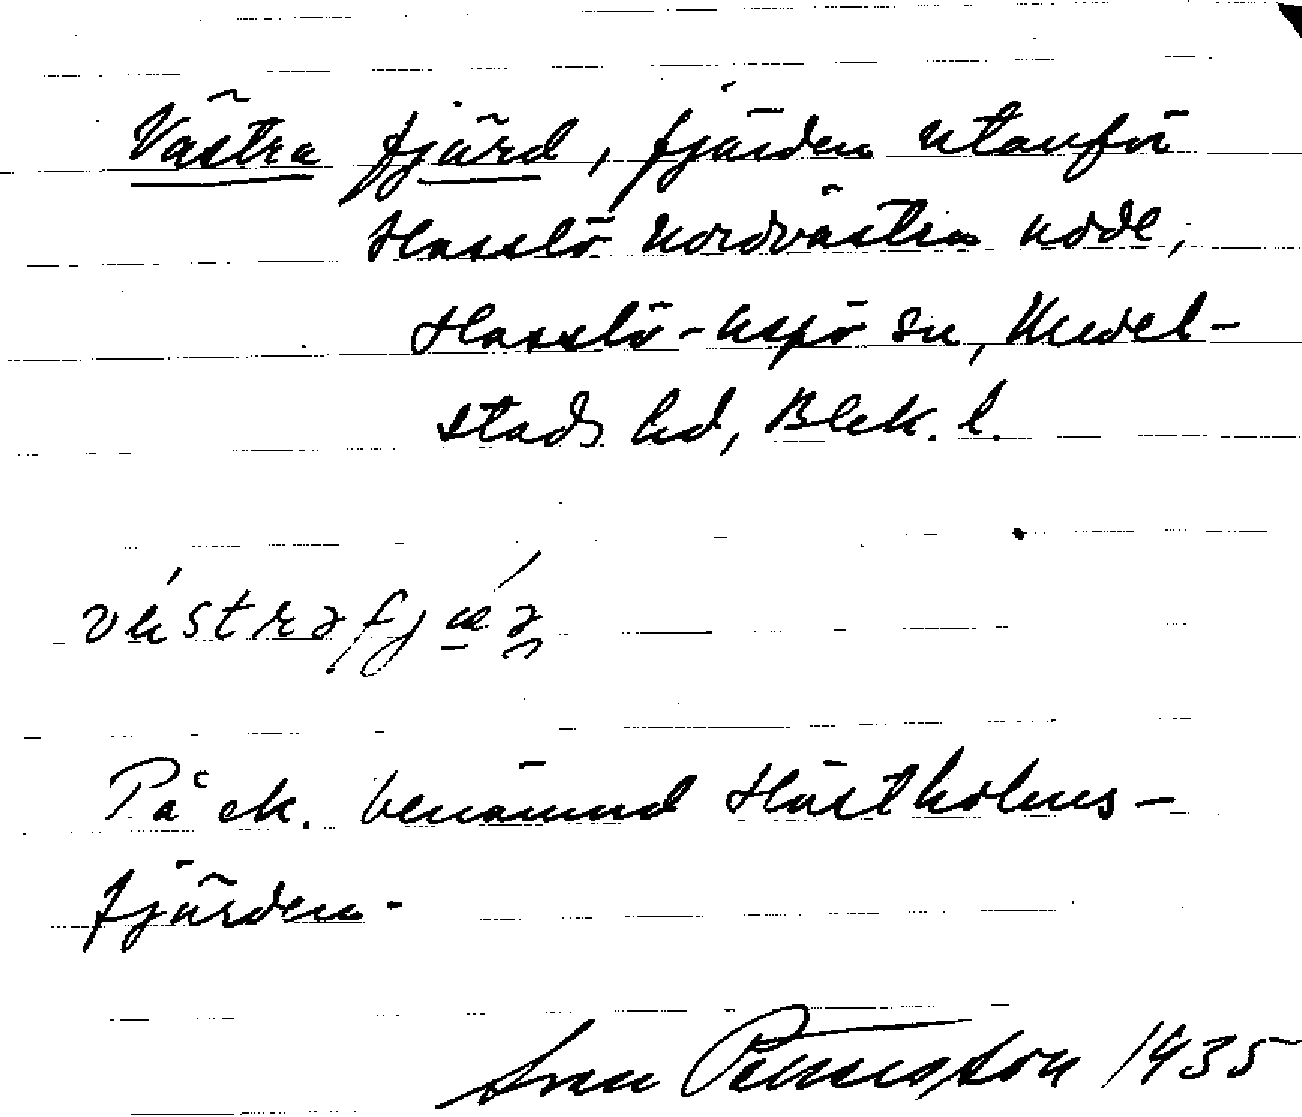 Västra fjärd, fjärden utanför
Hasslö nordvästra udde,
Hasslö-Aspö sn, Medel-
stads hd, Blek. l.
västrafjæ
På ek. benämnd Hästholms-
fjärden.
Sven 1935